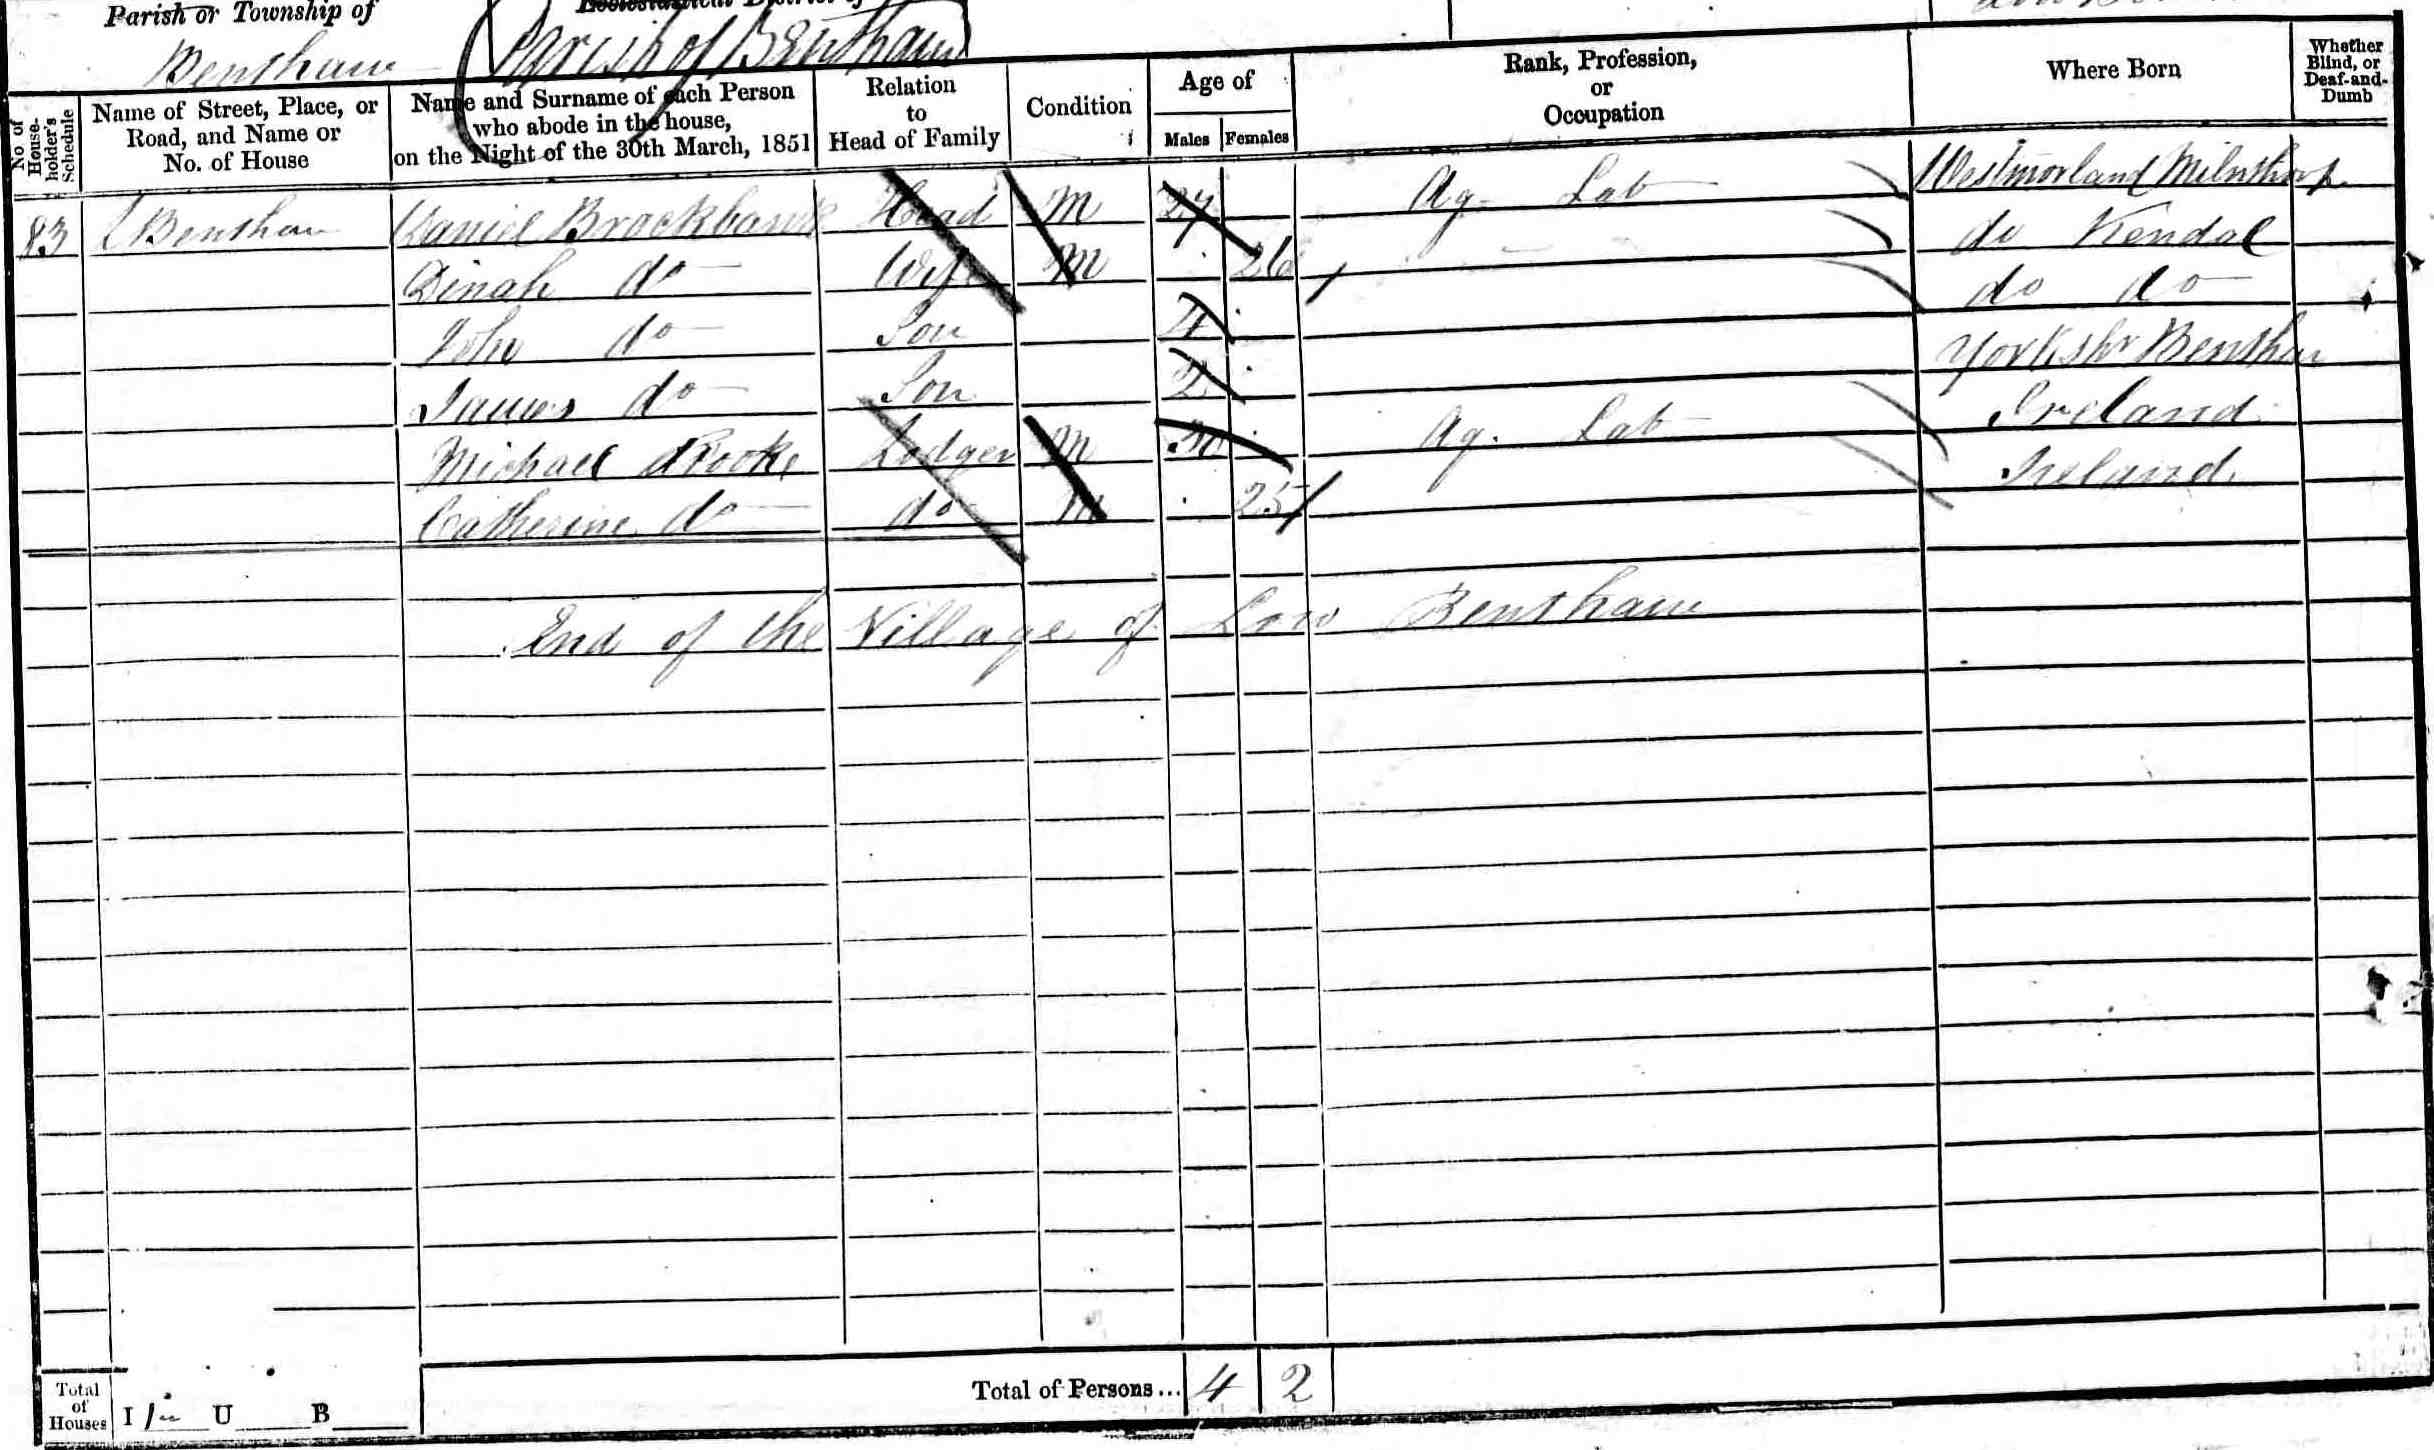 Parish or Township of
Bentham
Ecclesiastical District of
Parish of Bentham
No. of House-holder's Schedule
Name of Street, Place, or Road, and Name or No. of House
Name and Surname of each Person who abode in the house, on the Night of the 30th March, 1851
Relation to Head of Family
Condition
Age of
Males Females
Rank, Profession, or Occupation
Where Born
Whether Blind, or Deaf-and-Dumb
83 L Bentham Daniel Brockbank Head M 27 Ag. Lab Westmorland Milnthorp
Dinah do Wife M 26 do Kendal
John do Son 4 do do
James do Son 2 Yorkshr Bentham
Michael Rooke Lodger M 30 Ag. Lab Ireland
Catherine do do M 25 Ireland
End of the Village of Low Bentham
Total of Houses I 1 U B
Total of Persons... 4 2